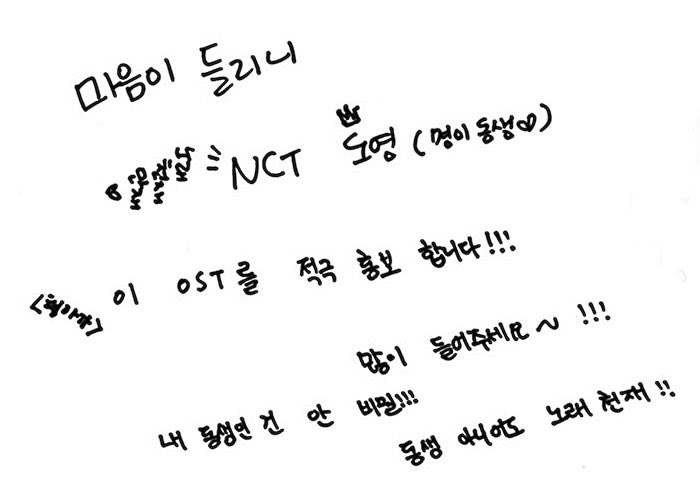 마음이 들리니
NCT 도영 (명이 동생♡)
이 OST를 적극 홍보 합니다!!!
많이 들어주세요~ !!!
내 동생인 건 안 비밀!!!
동생 아니어도 노래 천재!!